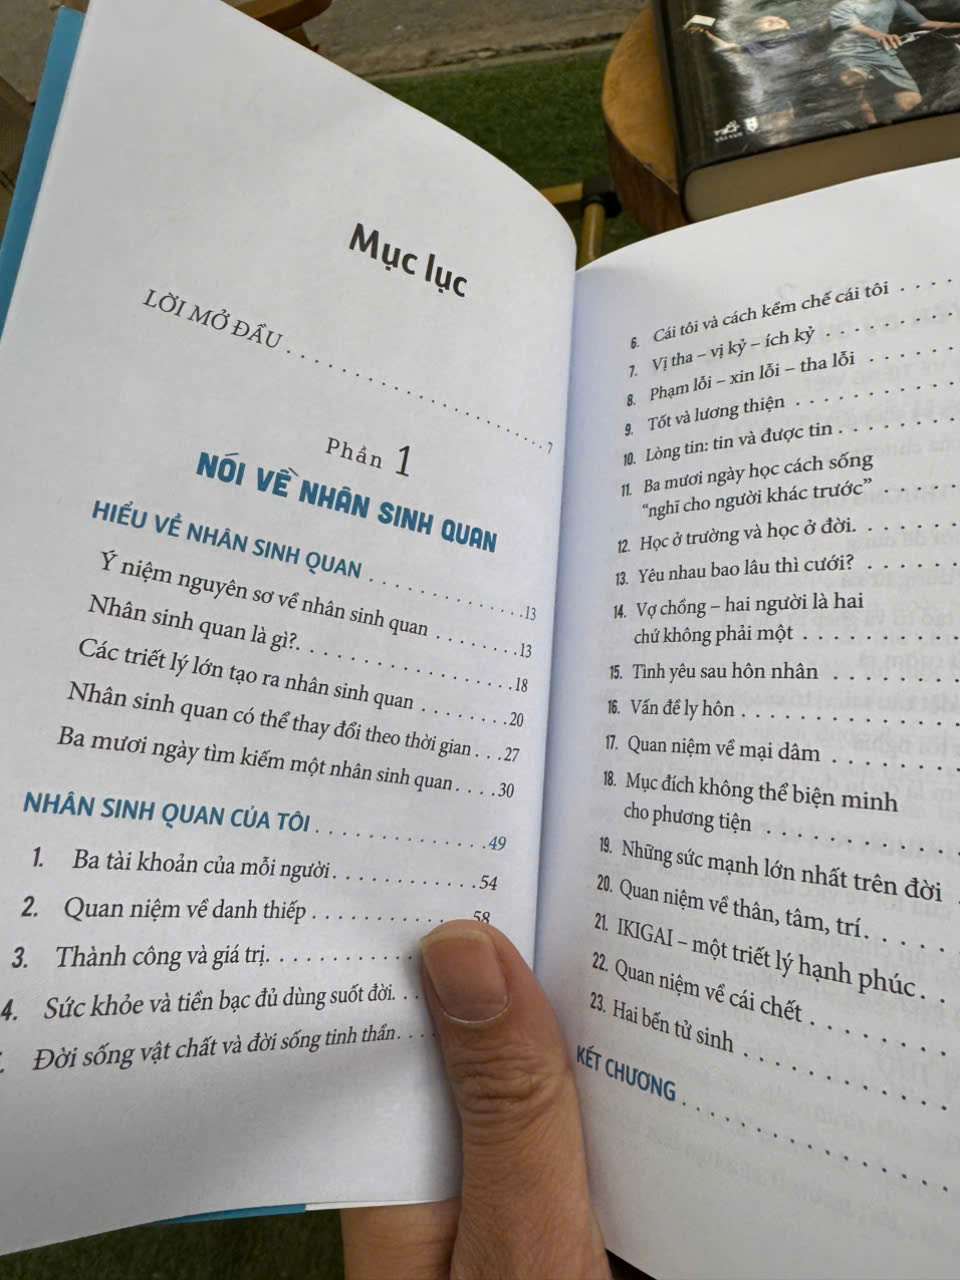 Mục lục
LỜI MỞ ĐẦU . . . . . . . . . . . . . . . . . . . . . . . . 7
Phần 1
NÓI VỀ NHÂN SINH QUAN
HIỂU VỀ NHÂN SINH QUAN . . . . . . . . . . . . . 13
Ý niệm nguyên sơ về nhân sinh quan . . . . . . . 13
Nhân sinh quan là gì?. . . . . . . . . . . . . . . . . 18
Các triết lý lớn tạo ra nhân sinh quan . . . . . . . . 20
Nhân sinh quan có thể thay đổi theo thời gian . . . 27
Ba mươi ngày tìm kiếm một nhân sinh quan . . . . 30
NHÂN SINH QUAN CỦA TÔI . . . . . . . . . . . . . . 49
1. Ba tài khoản của mỗi người . . . . . . . . . . . . 54
2. Quan niệm về danh thiếp . . . . . . . . . . . . . 58
3. Thành công và giá trị. . . . . . . . . . . .
4. Sức khỏe và tiền bạc đủ dùng suốt đời. . .
Đời sống vật chất và đời sống tinh thần . . . .
6. Cái tôi và cách kềm chế cái tôi . . . .
7. Vị tha – vị kỷ – ích kỷ . . . . . . . . .
8. Phạm lỗi – xin lỗi – tha lỗi . . . . . .
9. Tốt và lương thiện . . . . . . . . . . .
10. Lòng tin: tin và được tin . . . . . . . .
11. Ba mươi ngày học cách sống
“nghĩ cho người khác trước” . . . . .
12. Học ở trường và học ở đời. . . . . . .
13. Yêu nhau bao lâu thì cưới? . . . . . .
14. Vợ chồng – hai người là hai
chứ không phải một . . . . . . . . .
15. Tình yêu sau hôn nhân . . . . . . . .
16. Vấn đề ly hôn . . . . . . . . . . . . . .
17. Quan niệm về mại dâm . . . . . . . .
18. Mục đích không thể biện minh
cho phương tiện . . . . . . . . . . .
19. Những sức mạnh lớn nhất trên đời .
20. Quan niệm về thân, tâm, trí. . . . . .
21. IKIGAI – một triết lý hạnh phúc . . .
22. Quan niệm về cái chết . . . . . . . .
23. Hai bến tử sinh . . . . . . . . . . . .
KẾT CHƯƠNG . . . . . . . . . . . . . . . .